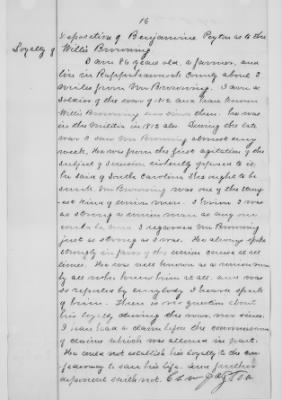 16
Deposition of Benjamine Peyton as to the
Loyalty of Willis Browning
I am 86 years old, a farmer, and
live in Rappahannock County about 2
miles from Mr Browning. I am a
soldier of the war of 1812 and have known
Willis Browning ever since then. He was
in the Militia in 1812 also. During the late
war I saw Mr Browning almost every
week. He was from the first agitation of the
subject of secession violently opposed to it.
He said of South Carolina she ought to be
sunk. Mr Browning was one of the strong
est kind of union men. I know I was
as strong a union man as any one
could be and I regarded Mr Browning
just as strong as I was. He always spoke
strongly in favor of the union cause at all
times. He was well known as a union man
by all who knew him at all, and was
so reputed by everybody I heard speak
of him. There is no question about
his loyalty during the war, nor since.
I have had a claim before the commissioners
of claims which was allowed in part.
He could not establish his loyalty to the con
federacy to save his life. And further
deponent saith not.